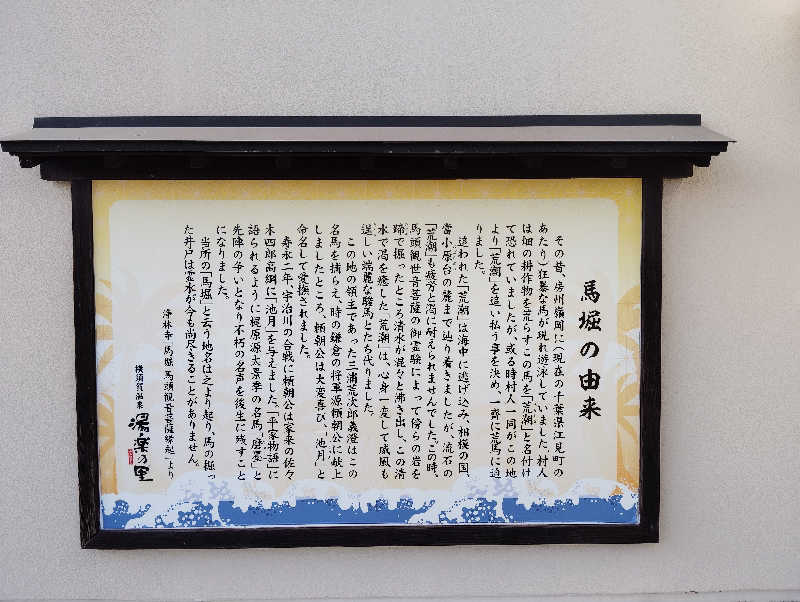 馬堀の由来
その昔、房州嶺岡に(現在の千葉県江見町の
あたり)狂暴な馬が現れ遊泳していました。村人
は畑の耕作物を荒らすこの馬を「荒潮」と名付け
て恐れていましたが、或る時村人一同がこの地
より「荒潮」を追い払う事を決め、一斉に荒馬に迫
りました。
追われた「荒潮」は海中に逃げ込み、相模の国、
當小原台の麓まで辿り着きましたが、流石の
「荒潮」も疲労と渇に耐えられませんでした。この時、
馬頭観世音菩薩の御霊験によって傍らの岩を
蹄で掘ったところ清水が混々と沸き出し、この清
水で渇を癒した「荒潮」は、心身一変して威風も
逞しい端麗な駿馬とたち代りました。
この地の領主であった三浦荒次郎義澄はこの
名馬を捕らえ、時の鎌倉の将軍源頼朝公に献上
しましたところ、頼朝公は大変喜び、「池月」と
命名して愛撫されました。
寿永二年、宇治川の合戦に頼朝公は家来の佐々
木四郎高綱に「池月」を与えました。「平家物語」に
語られるように梶原源太景季の名馬「磨墨」と
先陣の争いとなり不朽の名声を後生に残すこと
になりました。
当所の「馬堀」と云う地名は之より起り、馬の掘っ
た井戸は霊水が今も尚尽きることがありません。
浄林寺「馬堀 馬頭観音菩薩縁起」より
横須賀温泉
湯楽の里